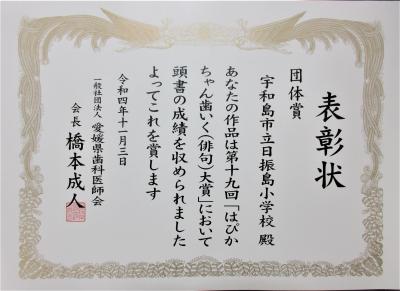 表彰状
団体賞
宇和島市立日振島小学校 殿
あなたの作品は第十九回「はぴか
ちゃん歯いく(俳句)大賞」において
頭書の成績を収められました
よってこれを賞します
令和四年十一月三日
一般社団法人 愛媛県歯科医師会
会長 橋本成人